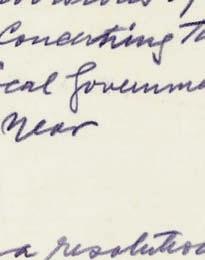 Concerning
ocal Governme
Near
a resolution